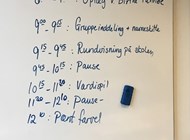 9⁰⁰ - 9¹⁵ : Gruppeinddeling + navneskilte
9¹⁵ - 9⁴⁵ : Rundvisning på skolen
9⁴⁵ - 10¹⁵ : Pause
10¹⁵ - 11³⁰ : Værdispil
11³⁰ - 12¹⁰ : Pause
12¹⁰ : Pænt farvel